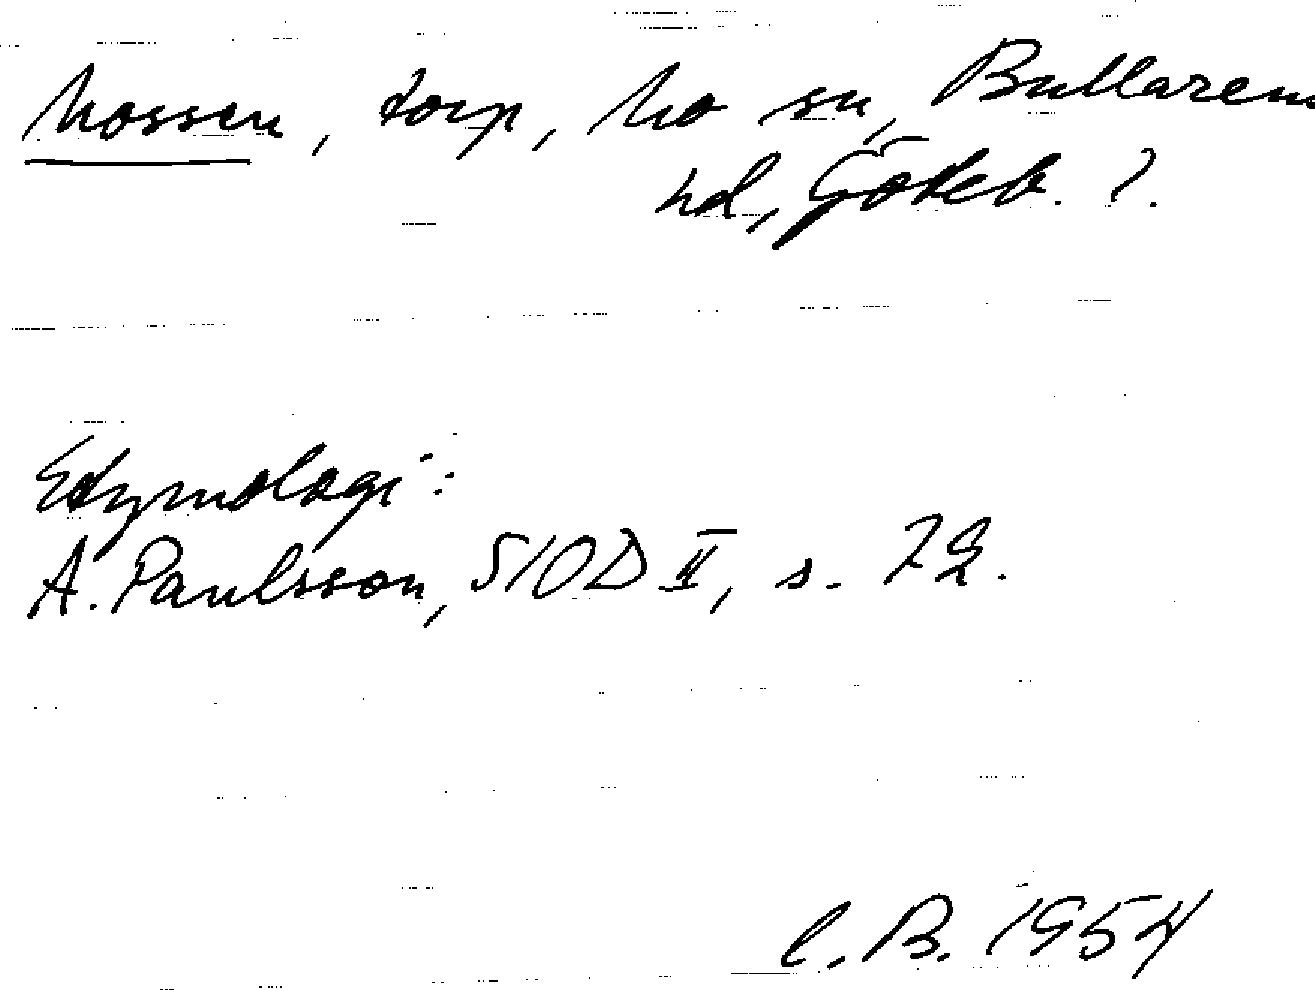 Mossen, torp, Mo sn, Bullarens
hd, Göteb. l.
Etymologi:
A. Paulsson, SIOD II, s. 72.
C. B. 1954